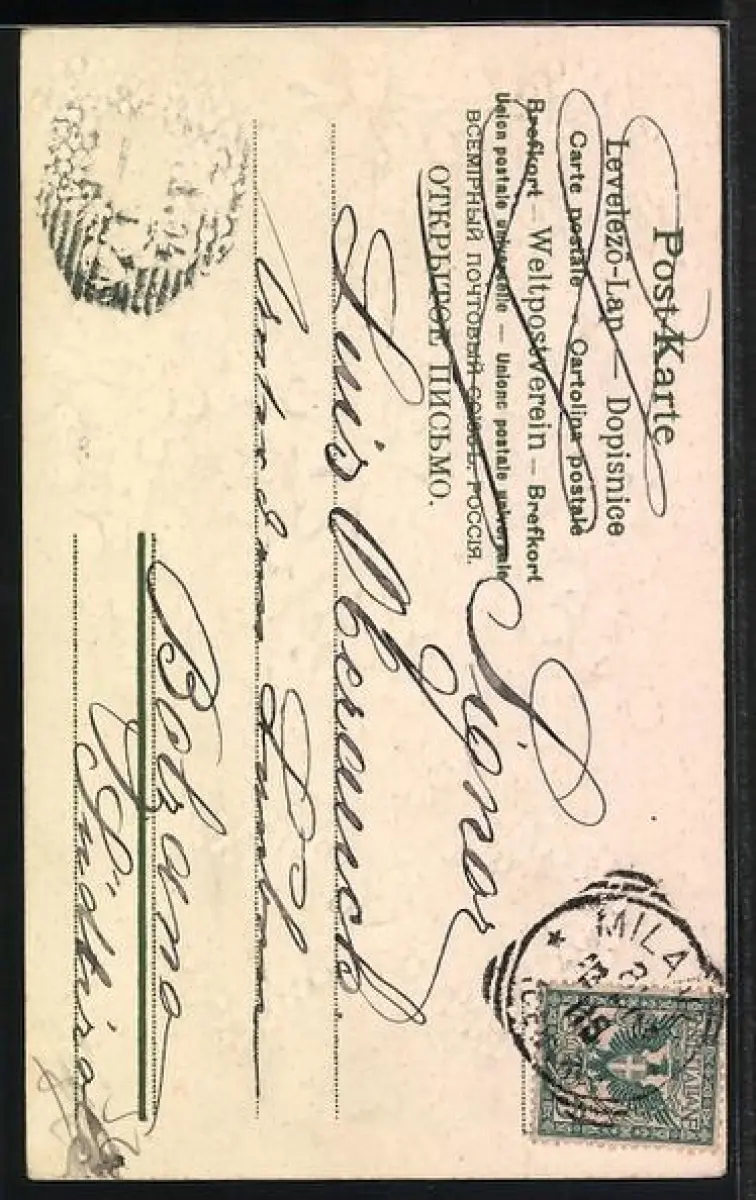 Post-Karte
Levelező-Lap — Dopisnice
Carte postale — Cartolina postale
Brefkort — Weltpostverein — Brefkort
Union postale universelle — Unione postale universale
ВСЕМІРНЫЙ ПОЧТОВЫЙ СОЮЗЪ. РОССІЯ.
ОТКРЫТОЕ ПИСЬМО.
Signor
Luis Oberrauch
Bolzano
Südtirol
MILA